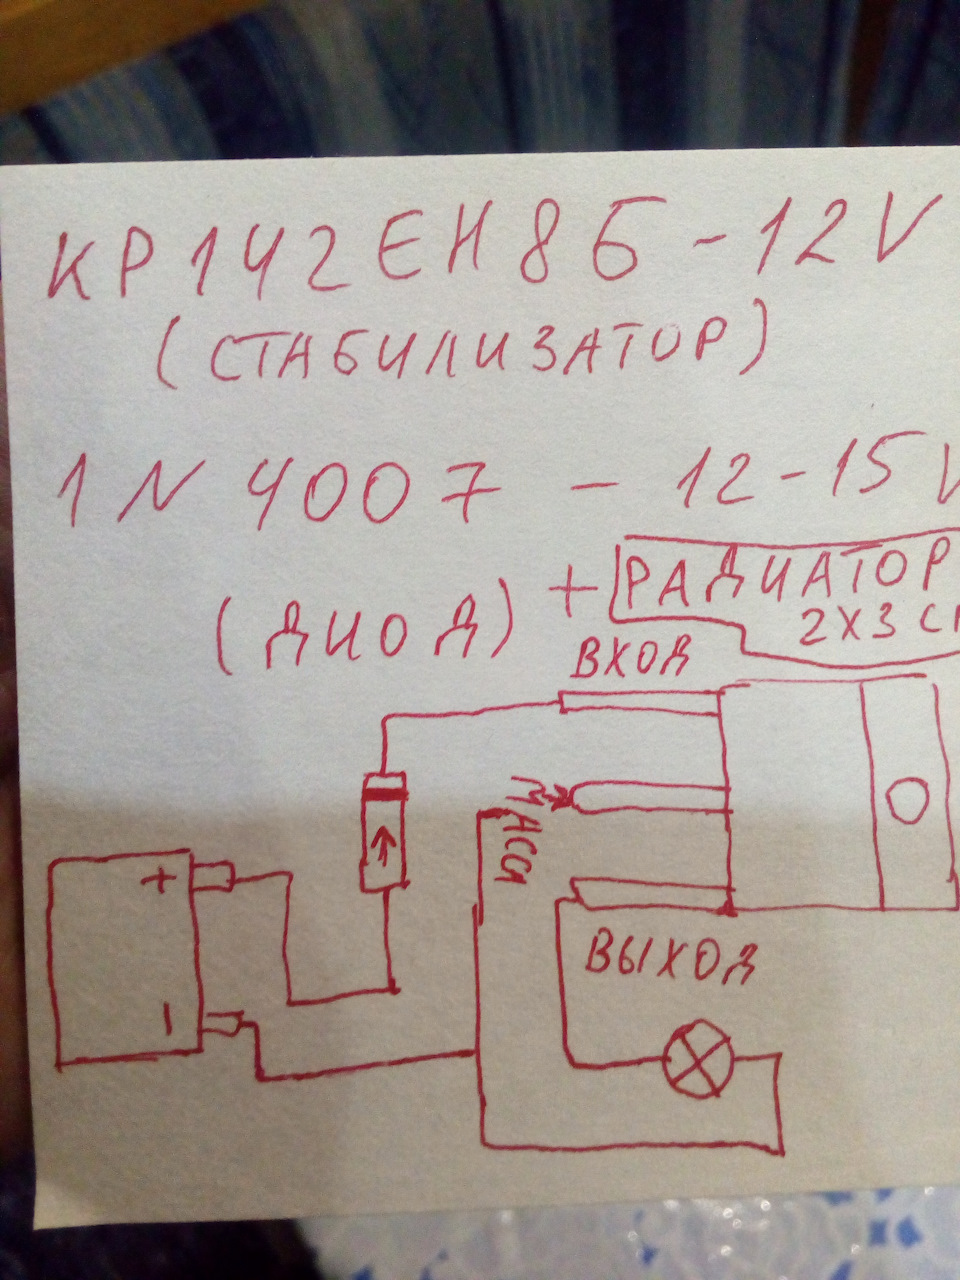 КР142ЕН8Б - 12V
(СТАБИЛИЗАТОР)
1N4007 - 12-15V
(ДИОД) + РАДИАТОР
2X3 СМ
ВХОД
МАССА
+
-
ВЫХОД